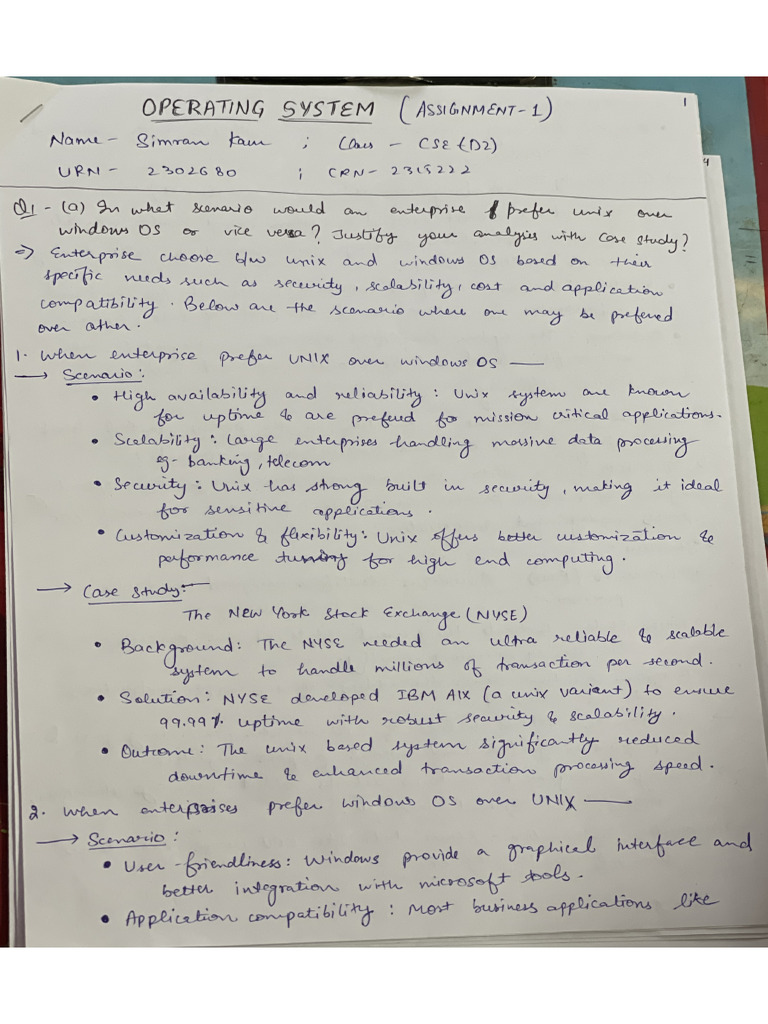 1
OPERATING SYSTEM (ASSIGNMENT-1)
Name- Simran Kaur ; Class - CSE (D2)
URN- 2302680 ; CRN- 2315222
Q1 - (a) In what scenario would an enterprise prefer unix over
windows OS or vice versa? Justify your analysis with case study?
=> Enterprise choose b/w unix and windows OS based on their
specific needs such as security, scalability, cost and application
compatibility. Below are the scenario where one may be prefered
over other.
1. When enterprise prefer UNIX over windows OS —
→ Scenario:
• High availability and reliability: Unix system are known
for uptime & are prefered for mission critical applications.
• Scalability: Large enterprises handling massive data processing
eg- banking, telecom
• Security: Unix has strong built in security, making it ideal
for sensitive applications.
• Customization & flexibility: Unix offers better customization &
performance tunning for high end computing.
→ Case Study:-
The New York Stock Exchange (NYSE)
• Background: The NYSE needed an ultra reliable & scalable
system to handle millions of transaction per second.
• Solution: NYSE developed IBM AIX (a unix variant) to ensure
99.99% uptime with robust security & scalability.
• Outcome: The unix based system significantly reduced
downtime & enhanced transaction processing speed.
2. When enterprises prefer windows OS over UNIX —
→ Scenario:
• User-friendliness: Windows provide a graphical interface and
better integration with microsoft tools.
• Application compatibility: Most business applications like